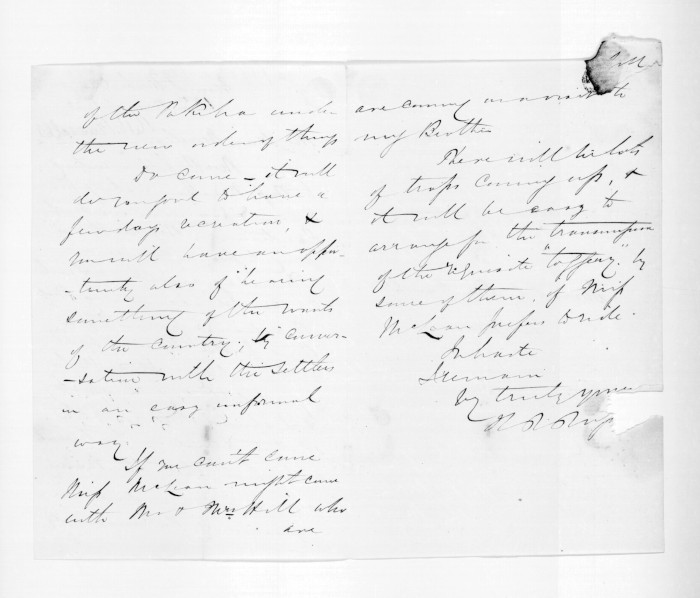 of the Pakeha under
the new order of things
Do come - it will
do you good to have a
few days recreation, &
you will have an oppor-
-tunity also of "hearing
something of the wants
of the country, by conver-
-sation with the settlers
in an "easy informal
way."
If you can't come
Miss McLean might come
with Mr & Mrs Hill who
are
are coming on a visit to
my Brother
There will be lots
of traps coming up, &
it will be easy to
arrange for the transmission
of the requisite "toggery" by
some of them, if Miss
McLean prefers to ride.
In haste
I remain
Vy truly yours